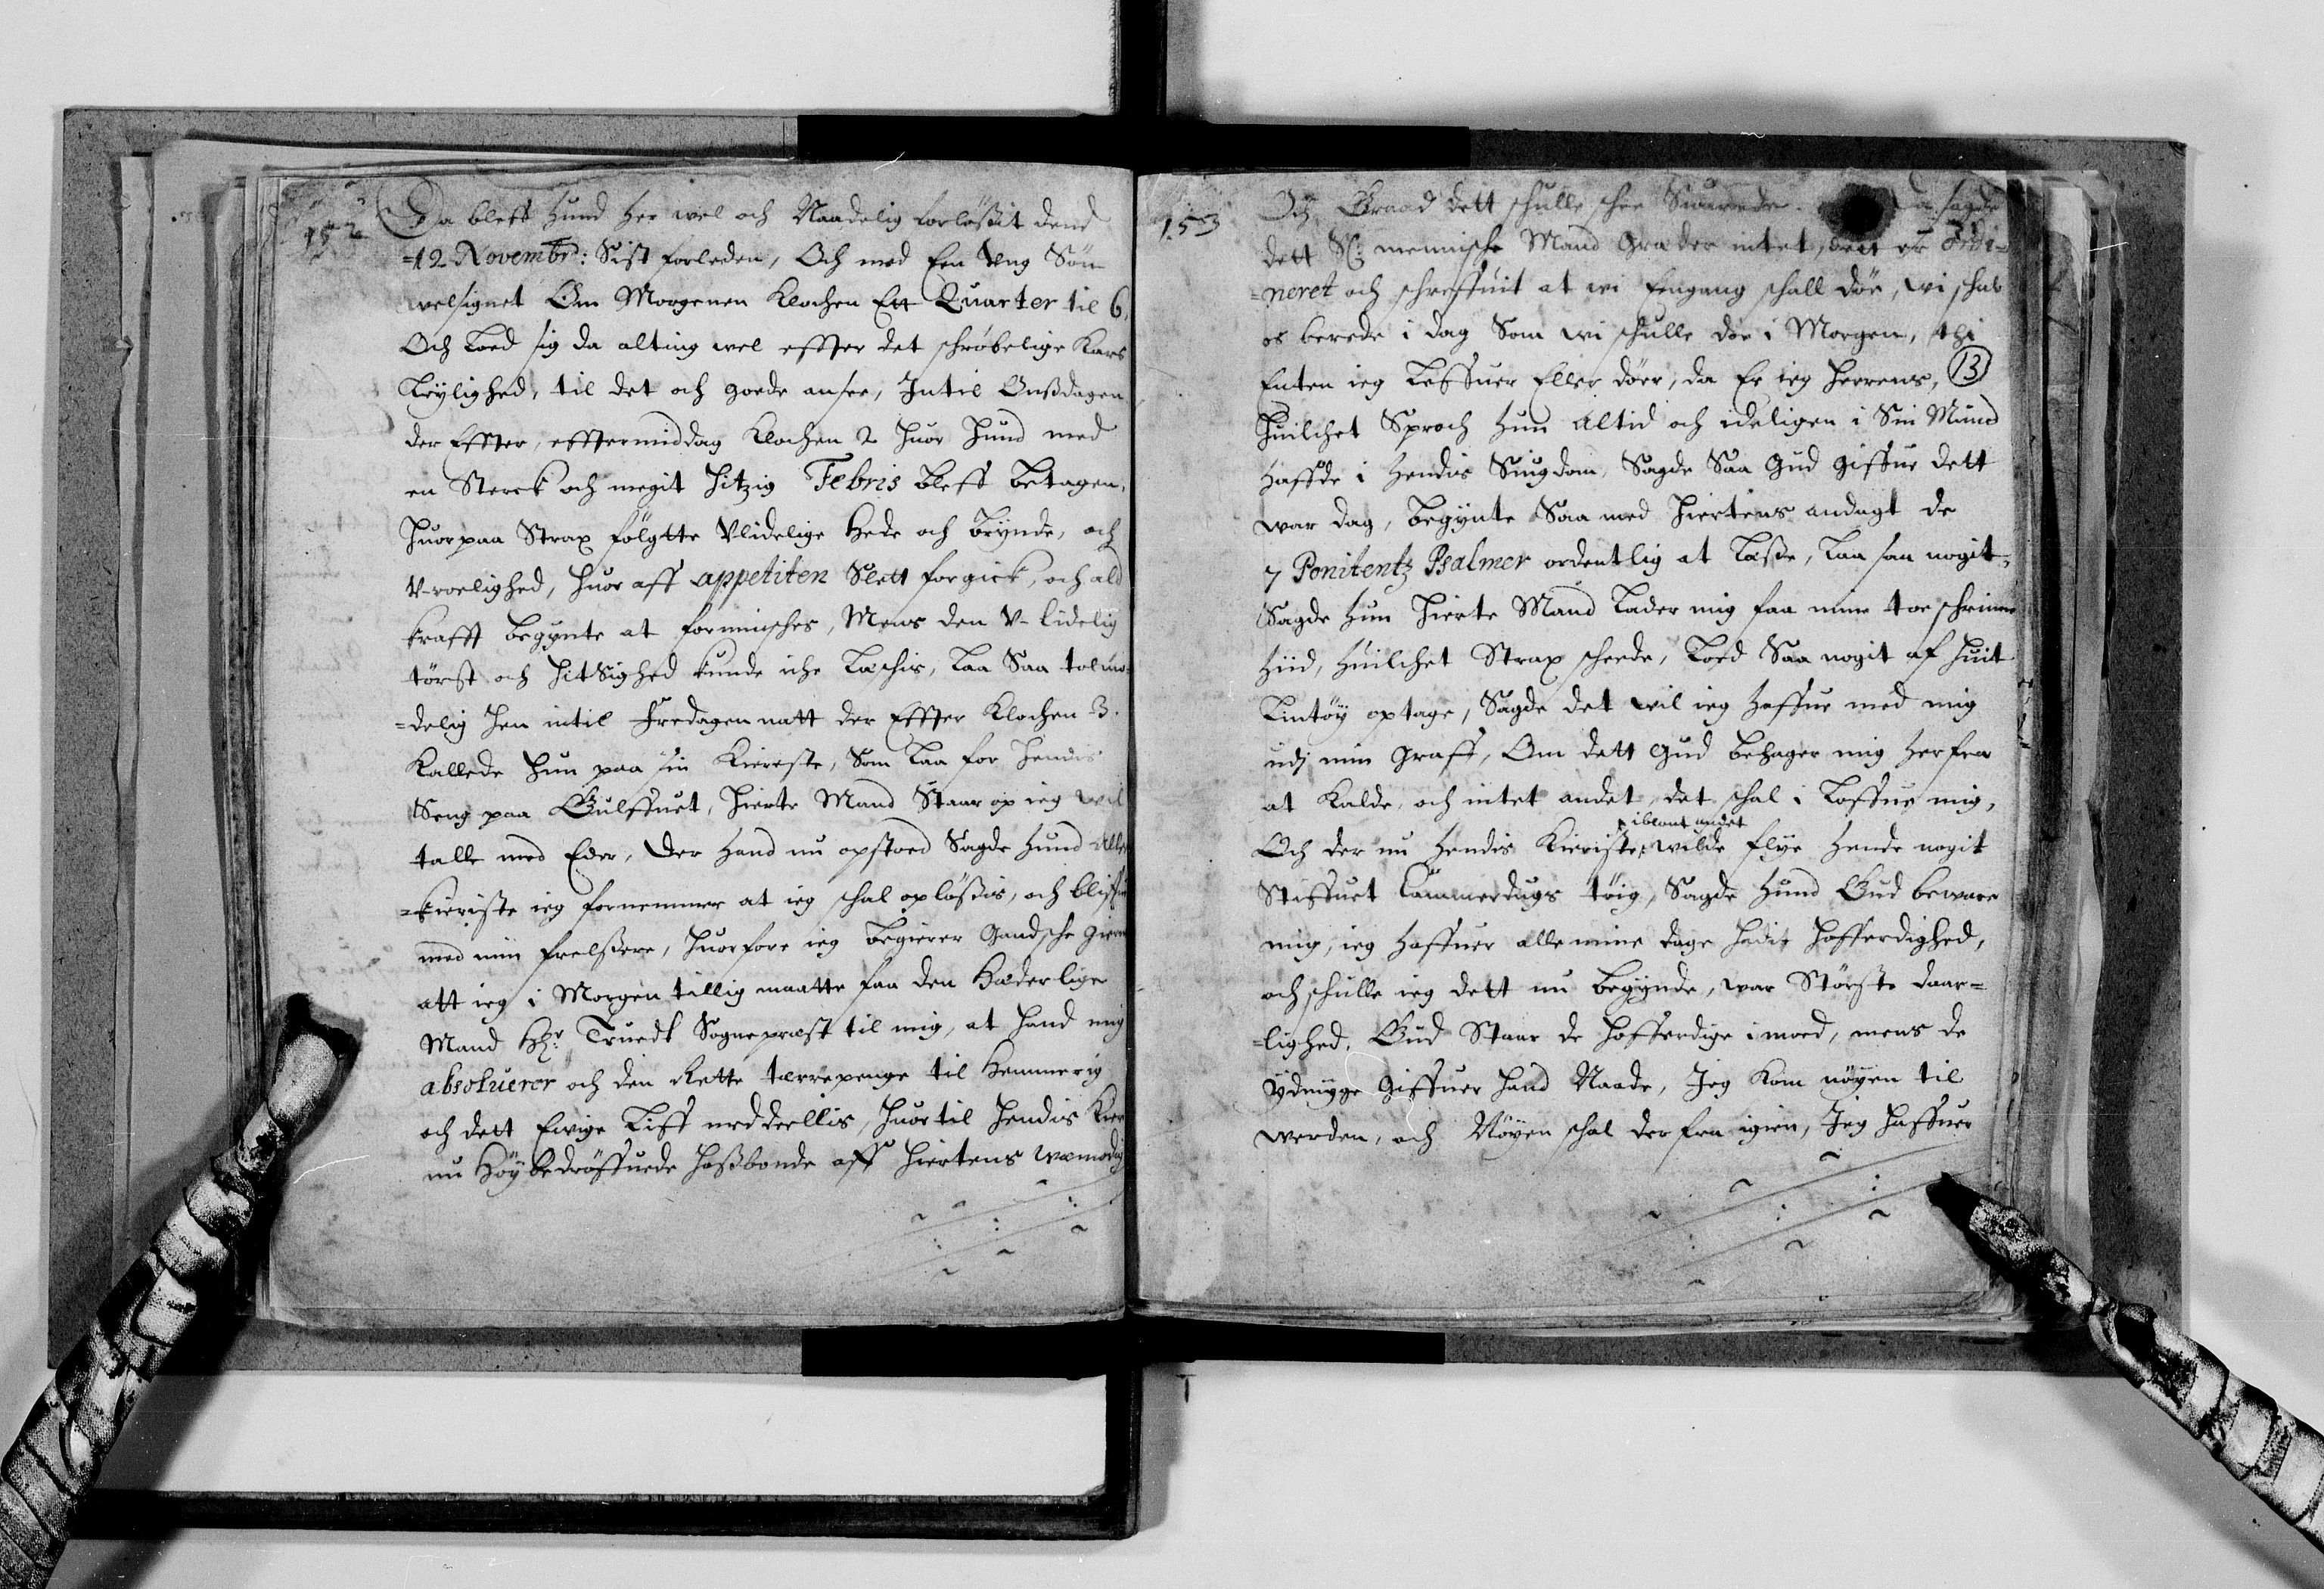 152
Da bleff hund her wel och Naadelig forløßit dend
=12 Novembr: Sist forleden, Och med Een Ung Søn
welsignet Om Morgenen Klochen Ett Quarter til 6,
Och Loed sig da alting wel effter det schrøbelige Kars
Leylighed, til det och goede ansee, Intil Onßdagen
der Effter, efftermiddag Klochen 2 huor hund med
en Sterck och megit hitzig Febris bleff betagen,
huorpaa Strax fölgtte Ulidelige Hede och brynde, och
U-roelighed, huor aff appetiten Slett forgick, och ald
krafft begynte at forminsches, Mens den U-lidelig
törst och hitsighed kunde iche Leschis, Laa Saa tolmo-
=delig hen intil Fredagen natt der Effter Klochen 3.
Kallede hun paa sin Kiereste, Som Laa for hendis
Seng paa Gulffuet, hierte Mand Staar op ieg wil
talle med Eder, Der hand nu opstoed Sagde hund Aller
=kieriste ieg fornemmer at ieg schal opløßis, och bliffue
med min frelßere, huorfore ieg begierer Gandsche gierne
att ieg i Morgen tillig maatte faa den Hæderlige
Mand Hr: Truedt Sognepræst til mig, at hand mig
absoluerer och den Rette tærrepenge til Hemmerig
och dett Ewige Liff meddeellis, huortil hendis Kier
nu Høybedrøffuede hoßbonde aff hiertens wemodig
153
Och Graad dett schulle schee Suarede. Da sagde
dett Sl: menniche Mand Græder intet, dett er Ordi=
=neret och schreffuit at wi Eengang schall døe, wi schal
os berede i dag Som wi schulle døe i Morgen, thi
Enten ieg Leffuer Eller døer, da Er ieg Herrens,
13
huilchet Sproch hun altid och ideligen i Sin Mund
haffde i hendis Siugdom, Sagde Saa Gud giffue dett
war dag, begynte Saa med hiertens andagt de
7 Penitentz Psalmer ordentlig at Læße, Laa saa nogit,
Sagde hun hierte Mand Lader mig faa mine toe schrinne
hiid, huilchet Strax scheede, Loed Saa nogit af huit
Lintøy optage, Sagde det wil ieg haffue med mig
udj min Graff, Om dett Gud behager mig herfra
at Kalde, och intet andet, det schal i Loffue mig,
iblant andet
Och der nu hendis Kieriste, wilde flye hende nogit
Stiffuet Cammerdugs tøig, Sagde hund Gud beware
mig, ieg haffuer alle mine dage hadit hofferdighed,
och schulle ieg dett nu begynde, war Største daar=
=lighed, Gud Staar de hofferdige imoed, mens de
ydmyge Giffuer hand Naade, Jeg Kom nøgen til
werden, och Nøgen schal derfra igien, Jeg haffuer